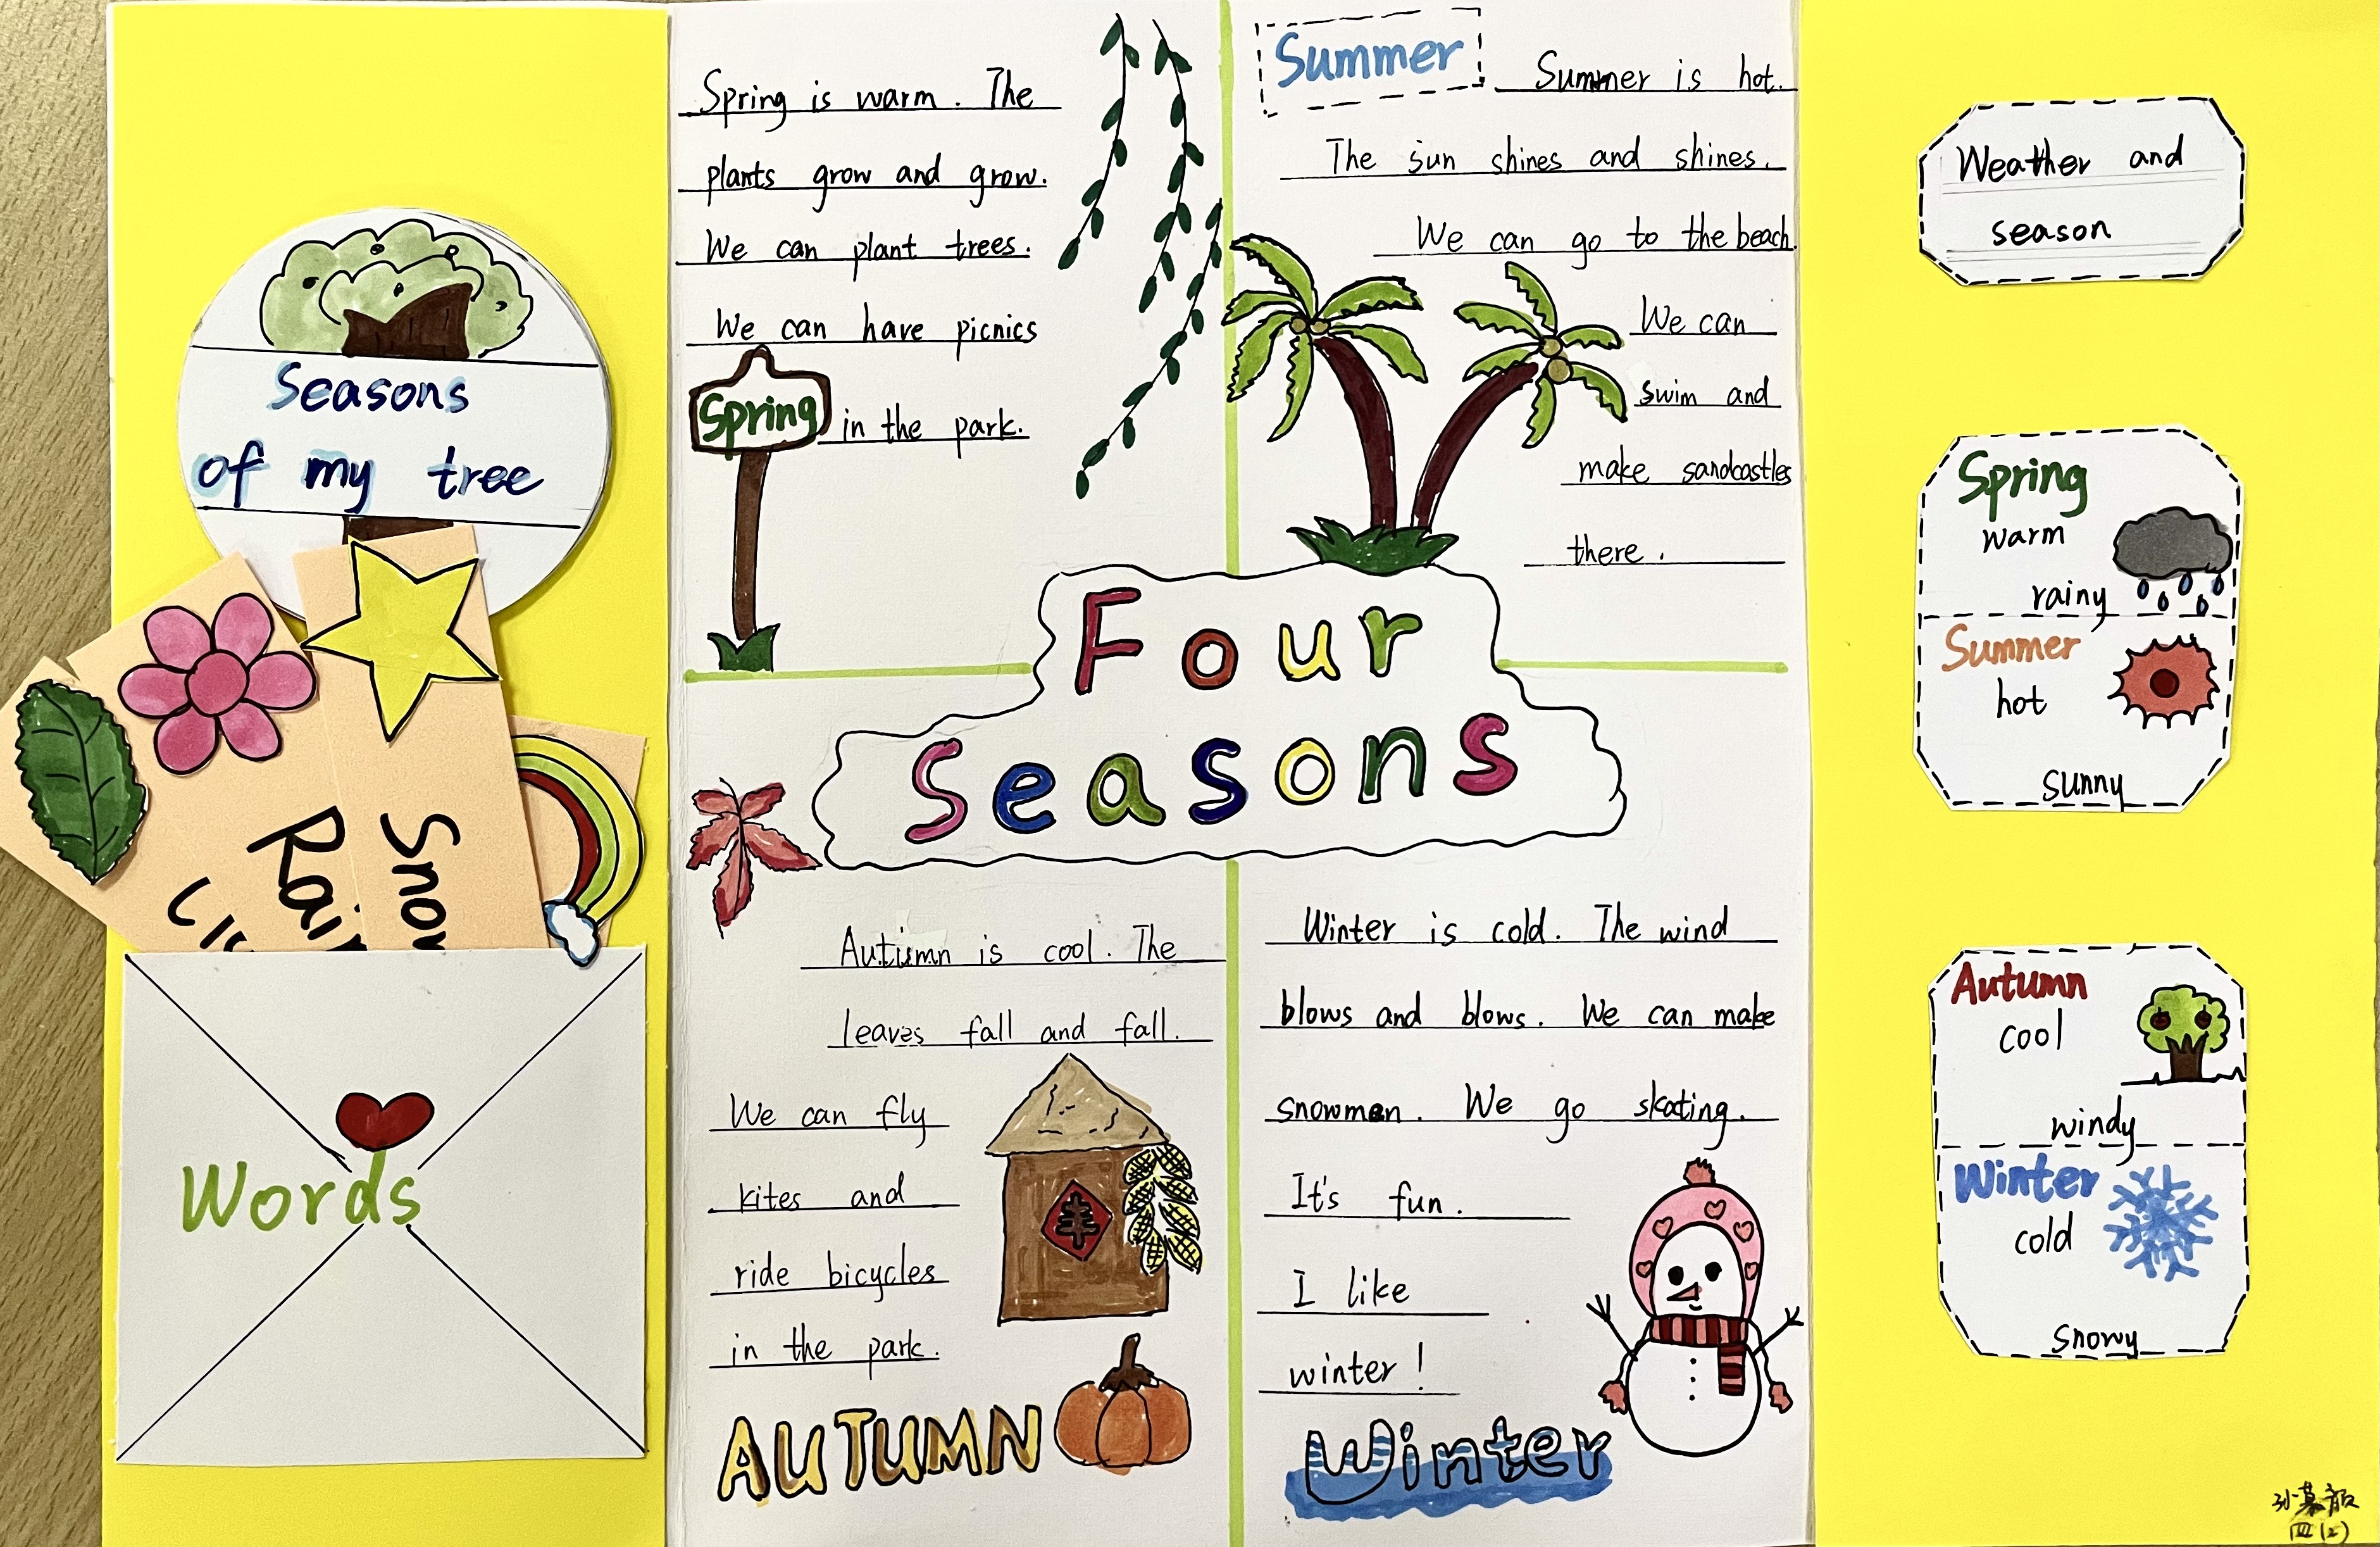 Seasons
of my tree
Snow
Rain
Words
Spring is warm. The
plants grow and grow.
We can plant trees.
We can have picnics
Spring
in the park.
Summer
Summer is hot.
The sun shines and shines.
We can go to the beach.
We can
swim and
make sandcastles
there.
Four
Seasons
Autumn is cool. The
leaves fall and fall.
We can fly
kites and
ride bicycles
in the park.
AUTUMN
Winter is cold. The wind
blows and blows. We can make
snowmen. We go skating.
It's fun.
I like
winter!
Winter
Weather and
season
Spring
warm
rainy
Summer
hot
sunny
Autumn
cool
windy
Winter
cold
snowy
四(2)